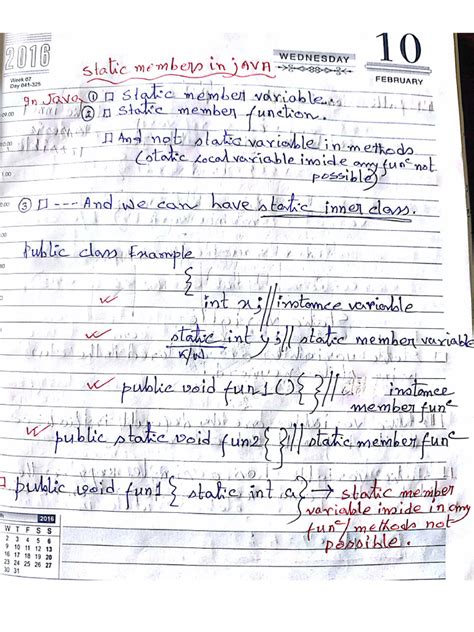 2016
Week 07
Day 041-325
WEDNESDAY
10
FEBRUARY
static members in JAVA
In Java, ① □ static member variable.
② □ static member function.
□ And not static variable in methods
(static local variable inside any funⁿ not
possible)
③ □ --- And we can have static inner class.
Public class Example
{
int x; // instance variable
static int y; // static member variable
K/W
public void fun1(){ } // instance
member funⁿ
public static void fun2{ } // static member funⁿ
□ public void fun1{ static int a} → static member
variable inside in any
funⁿ/methods not
possible.
2016
W T F S S
2 3 4 5 6
9 10 11 12 13
16 17 18 19 20
23 24 25 26 27
30 31